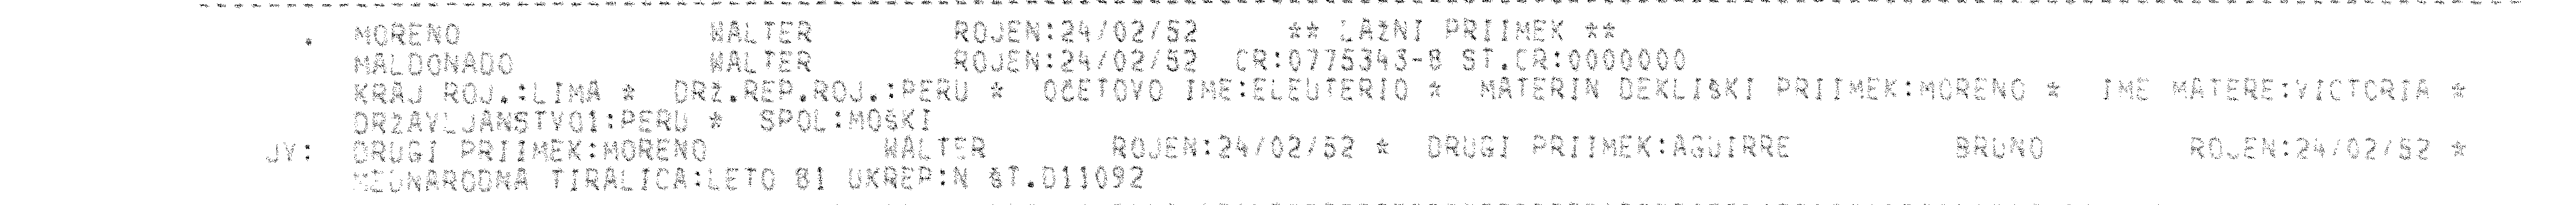 . MORENO WALTER ROJEN:24/02/52 ** LAŽNI PRIIMEK **
MALDONADO WALTER ROJEN:24/02/52 CR:0775343-8 ST.CR:0000000
KRAJ ROJ.:LIMA * DRŽ.REP.ROJ.:PERU * OČETOVO IME:ELEUTERIO * MATERIN DEKLIŠKI PRIIMEK:MORENO * IME MATERE:VICTORIA *
DRŽAVLJANSTVO1:PERU * SPOL:MOŠKI
JV: DRUGI PRIIMEK:MORENO WALTER ROJEN:24/02/52 * DRUGI PRIIMEK:AGUIRRE BRUNO ROJEN:24/02/52 *
MEDNARODNA TIRALICA:LETO 81 UKREP:N ŠT.D11092